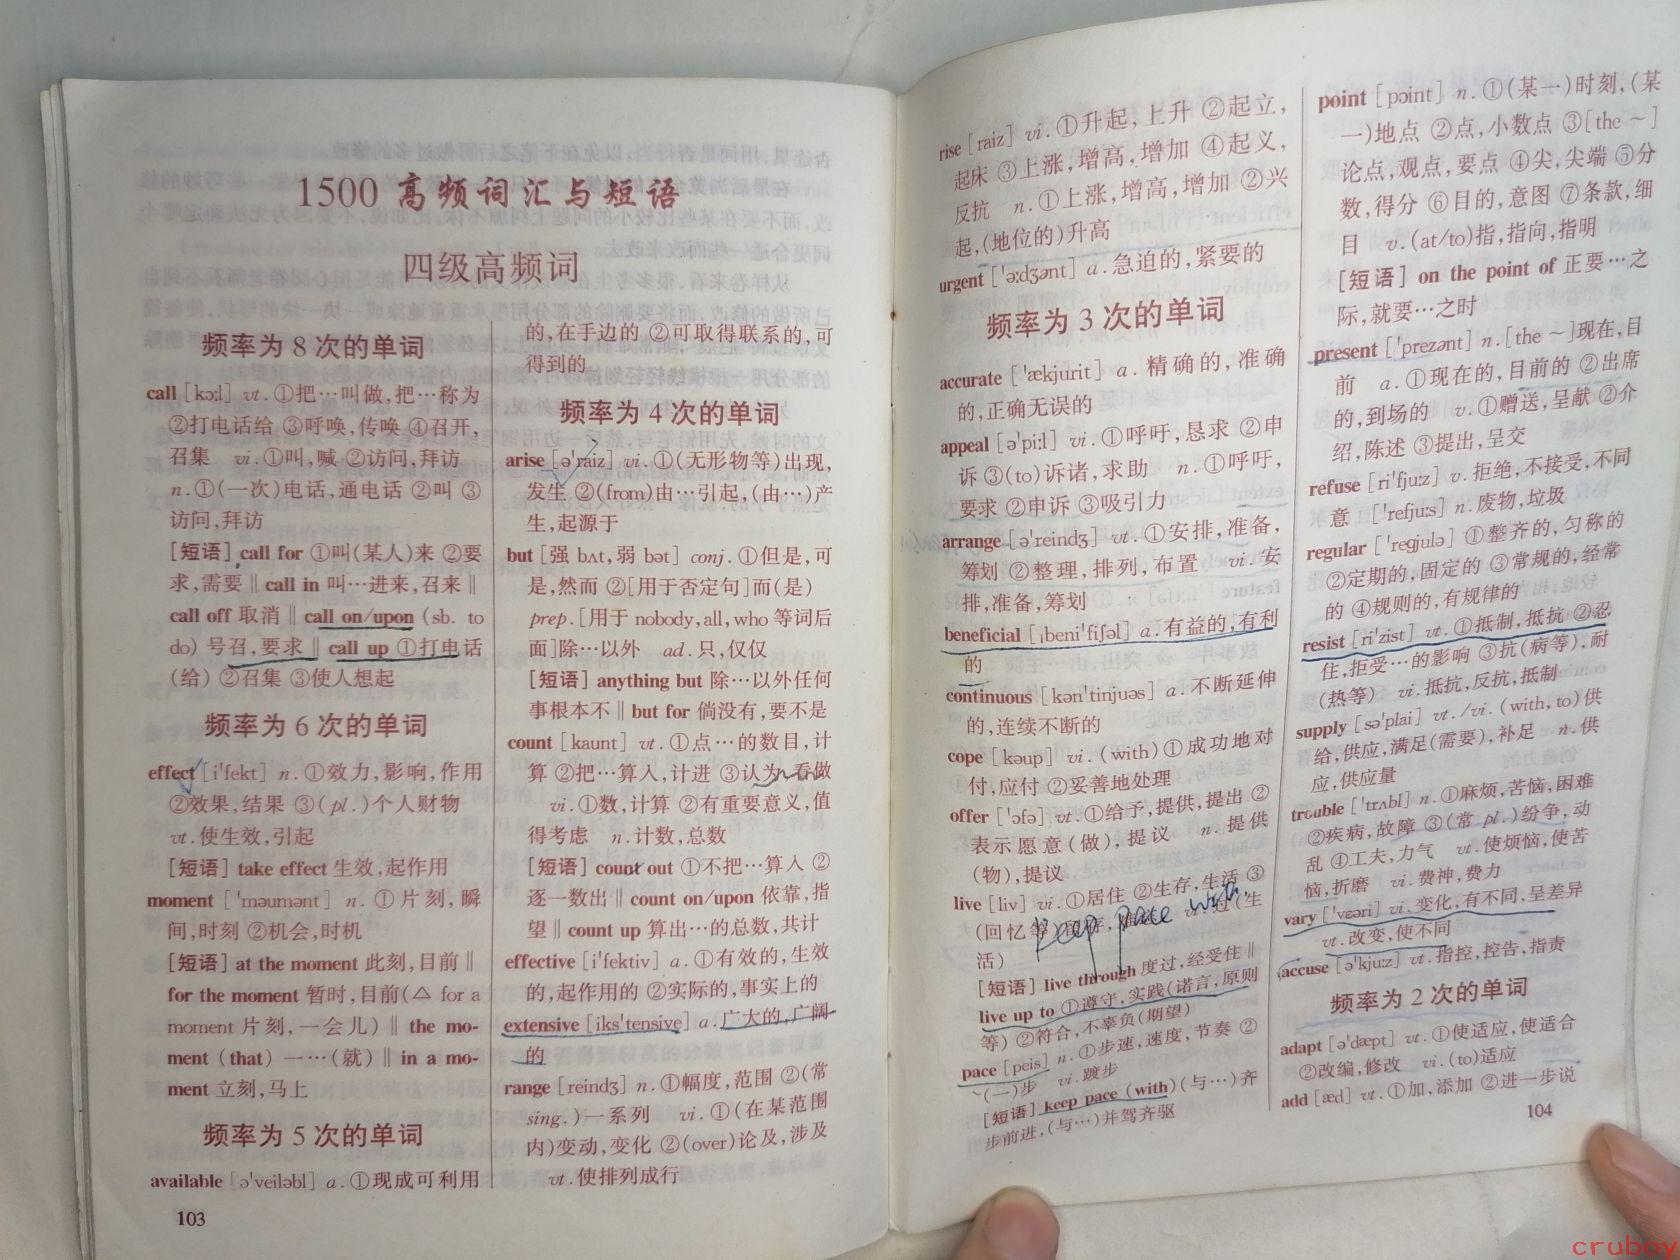 1500 高频词汇与短语
四级高频词
频率为 8 次的单词
call [kɔːl] vt. ①把…叫做,把…称为
②打电话给 ③呼唤,传唤 ④召开,
召集 vi. ①叫,喊 ②访问,拜访
n. ①(一次)电话,通电话 ②叫 ③
访问,拜访
[短语] call for ①叫(某人)来 ②要
求,需要 ‖ call in 叫…进来,召来 ‖
call off 取消 ‖ call on/upon (sb. to
do) 号召,要求 ‖ call up ①打电话
(给) ②召集 ③使人想起
频率为 6 次的单词
effect [i'fekt] n. ①效力,影响,作用
②效果,结果 ③(pl.)个人财物
vt. 使生效,引起
[短语] take effect 生效,起作用
moment ['məumənt] n. ①片刻,瞬
间,时刻 ②机会,时机
[短语] at the moment 此刻,目前 ‖
for the moment 暂时,目前(△ for a
moment 片刻,一会儿) ‖ the mo-
ment (that) 一…(就) ‖ in a mo-
ment 立刻,马上
频率为 5 次的单词
available [ə'veiləbl] a. ①现成可利用
103
的,在手边的 ②可取得联系的,可
得到的
频率为 4 次的单词
arise [ə'raiz] vi. ①(无形物等)出现,
发生 ②(from)由…引起,(由…)产
生,起源于
but [强 bʌt,弱 bət] conj. ①但是,可
是,然而 ②[用于否定句]而(是)
prep. [用于 nobody,all,who 等词后
面]除…以外 ad. 只,仅仅
[短语] anything but 除…以外任何
事根本不 ‖ but for 倘没有,要不是
count [kaunt] vt. ①点…的数目,计
算 ②把…算入,计进 ③认为,看做
vi. ①数,计算 ②有重要意义,值
得考虑 n. 计数,总数
[短语] count out ①不把…算入 ②
逐一数出 ‖ count on/upon 依靠,指
望 ‖ count up 算出…的总数,共计
effective [i'fektiv] a. ①有效的,生效
的,起作用的 ②实际的,事实上的
extensive [iks'tensive] a. 广大的,广阔
的
range [reindʒ] n. ①幅度,范围 ②(常
sing.)一系列 vi. ①(在某范围
内)变动,变化 ②(over)论及,涉及
vt. 使排列成行
rise [raiz] vi. ①升起,上升 ②起立,
起床 ③上涨,增高,增加 ④起义,
反抗 n. ①上涨,增高,增加 ②兴
起,(地位的)升高
urgent ['ə:dʒənt] a. 急迫的,紧要的
频率为 3 次的单词
accurate ['ækjurit] a. 精确的,准确
的,正确无误的
appeal [ə'pi:l] vi. ①呼吁,恳求 ②申
诉 ③(to)诉诸,求助 n. ①呼吁,
要求 ②申诉 ③吸引力
arrange [ə'reindʒ] vt. ①安排,准备,
筹划 ②整理,排列,布置 vi. 安
排,准备,筹划
beneficial [ˌbeni'fiʃəl] a. 有益的,有利
的
continuous [kən'tinjuəs] a. 不断延伸
的,连续不断的
cope [kəup] vi. (with)①成功地对
付,应付 ②妥善地处理
offer ['ɔfə] vt. ①给予,提供,提出 ②
表示愿意(做),提议 n. 提供
(物),提议
live [liv] vi. ①居住 ②生存,生活 ③
(回忆等) 过(生
keep pace with.
活)
[短语] live through 度过,经受住 ‖
live up to ①遵守,实践(诺言,原则
等) ②符合,不辜负(期望)
pace [peis] n. ①步速,速度,节奏 ②
(一)步 vi. 踱步
[短语] keep pace (with) (与…)齐
步前进,(与…)并驾齐驱
point [pɔint] n. ①(某一)时刻,(某
一)地点 ②点,小数点 ③[the ~]
论点,观点,要点 ④尖,尖端 ⑤分
数,得分 ⑥目的,意图 ⑦条款,细
目 v. (at/to)指,指向,指明
[短语] on the point of 正要…之
际,就要…之时
present ['prezənt] n. [the ~]现在,目
前 a. ①现在的,目前的 ②出席
的,到场的 v. ①赠送,呈献 ②介
绍,陈述 ③提出,呈交
refuse [ri'fju:z] v. 拒绝,不接受,不同
意 ['refju:s] n. 废物,垃圾
regular ['regjulə] ①整齐的,匀称的
②定期的,固定的 ③常规的,经常
的 ④规则的,有规律的
resist [ri'zist] vt. ①抵制,抵抗 ②忍
住,拒受…的影响 ③抗(病等),耐
(热等) vi. 抵抗,反抗,抵制
supply [sə'plai] vt./vi. (with,to)供
给,供应,满足(需要),补足 n. 供
应,供应量
trouble ['trʌbl] n. ①麻烦,苦恼,困难
②疾病,故障 ③(常 pl.)纷争,动
乱 ④工夫,力气 vt. 使烦恼,使苦
恼,折磨 vi. 费神,费力
vary ['vɛəri] vi. 变化,有不同,呈差异
vt. 改变,使不同
accuse [ə'kju:z] vt. 指控,控告,指责
频率为 2 次的单词
adapt [ə'dæpt] vt. ①使适应,使适合
②改编,修改 vi. (to)适应
add [æd] vt. ①加,添加 ②进一步说
104
cruboy